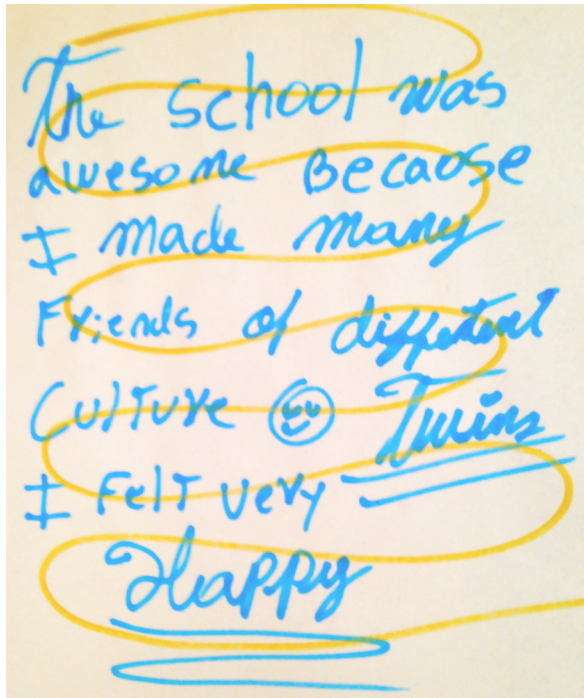 The school was
awesome Because
I made many
Friends of different
Culture Twins
I Felt very
Happy